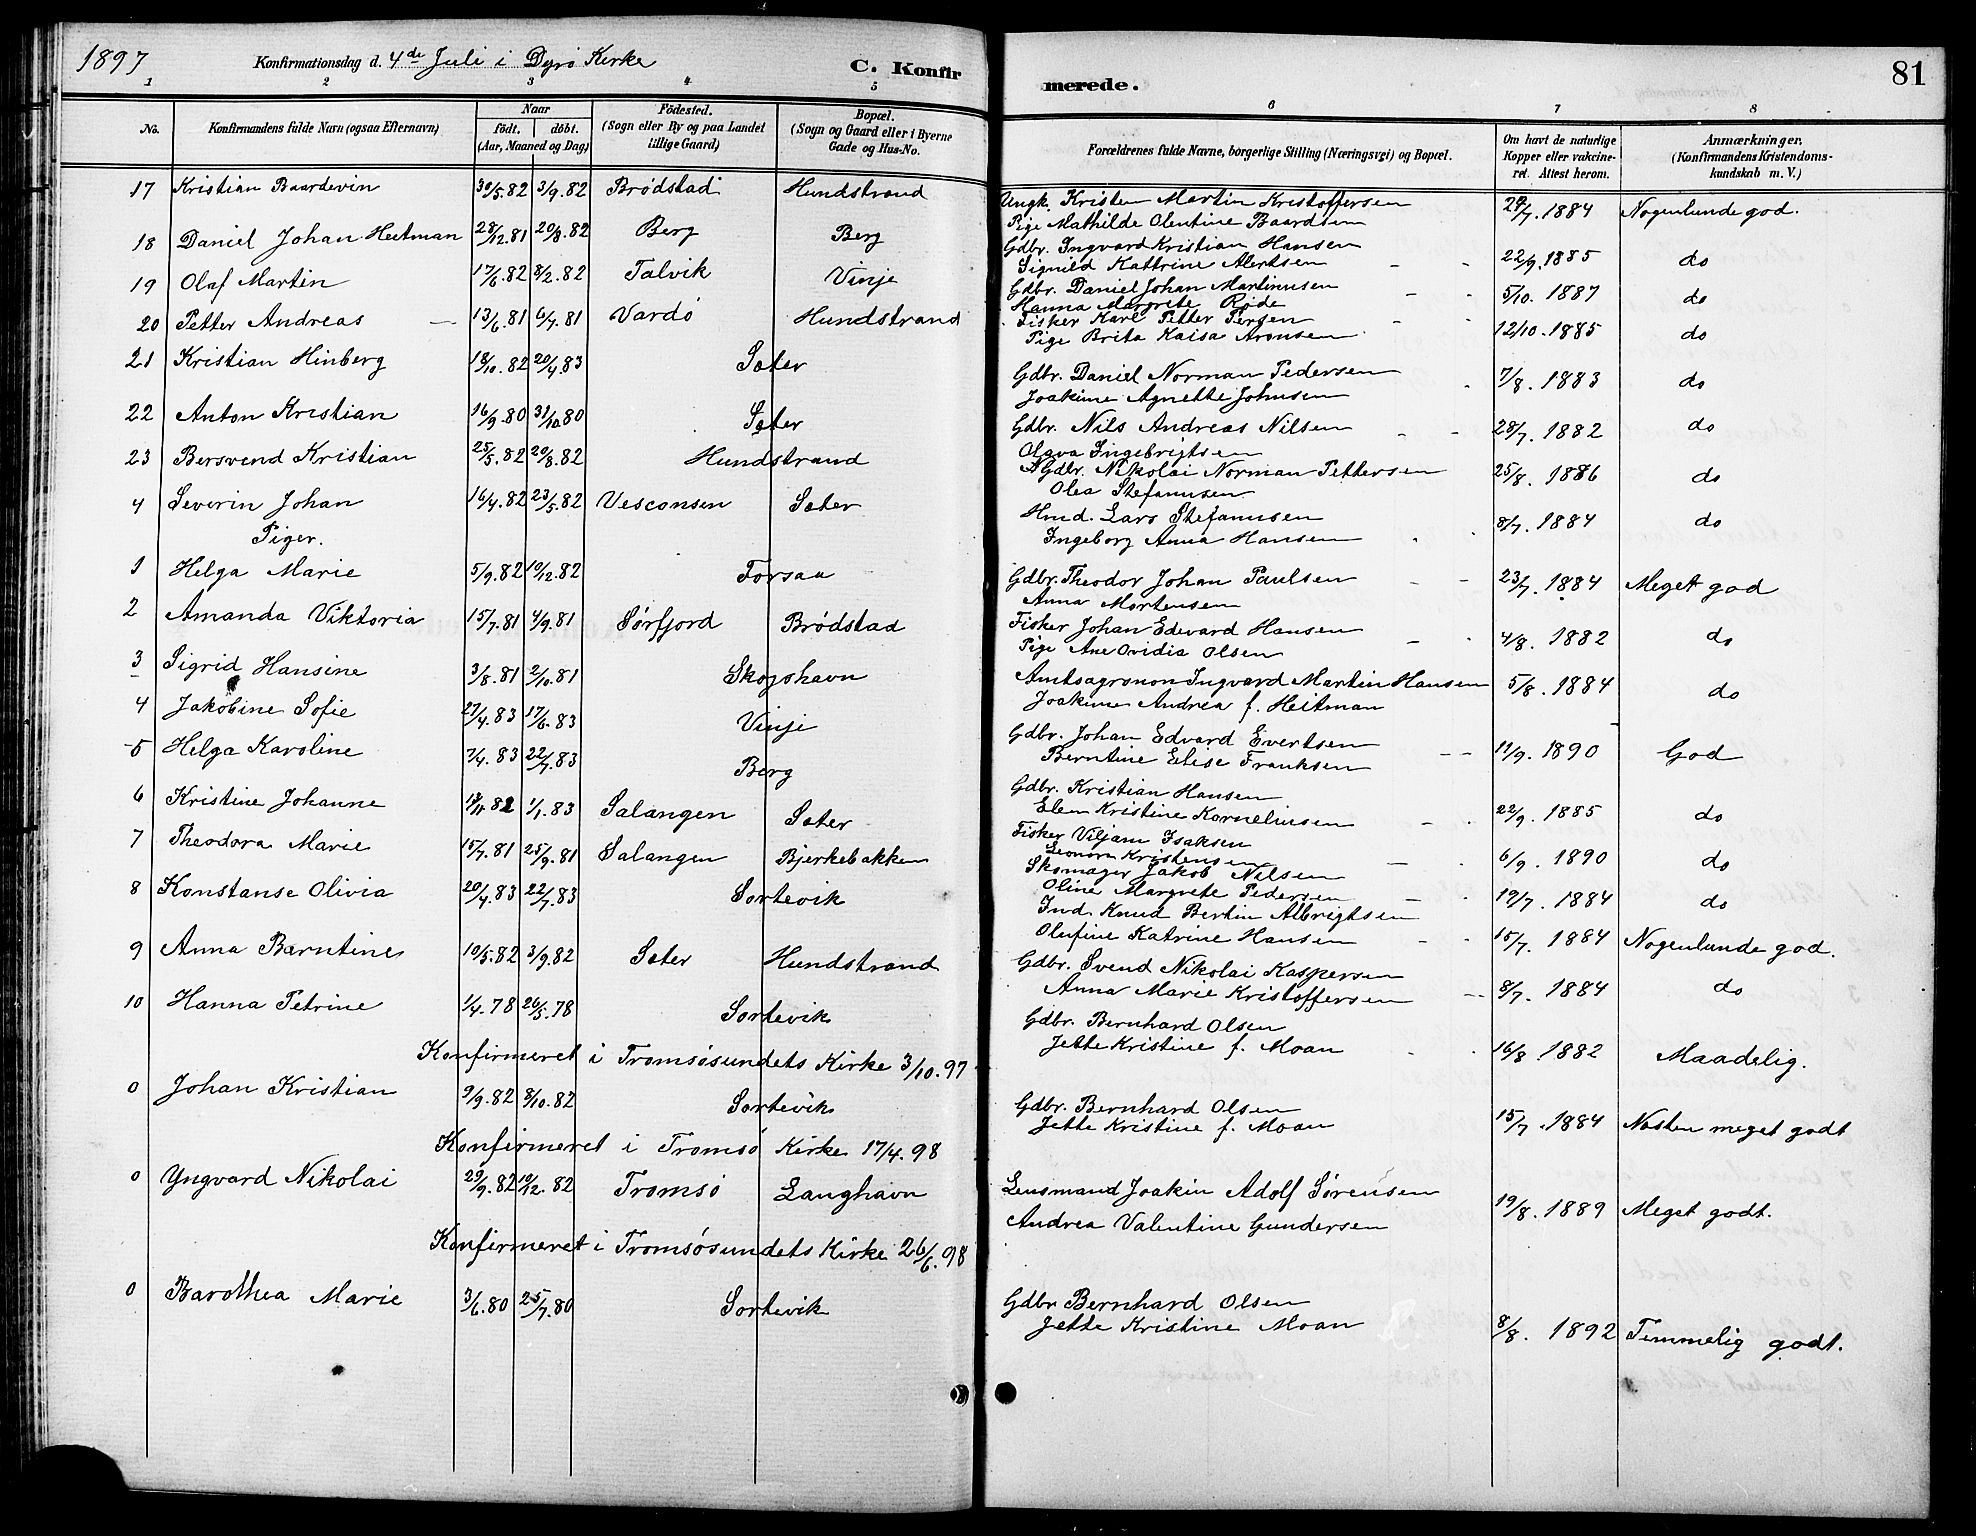 1897
Konfirmationsdag d. 4de Juli i Dyrö Kirke
C. Konfirmerede.
81
1 2 3 4 5 6 7 8
No.
Konfirmandens fulde Navn (ogsaa Efternavn)
Naar
födt. döbt.
(Aar, Maaned og Dag)
Födested.
(Sogn eller By og paa Landet tillige Gaard)
Bopæl.
(Sogn og Gaard eller i Byerne Gade og Hus-No.
Forældrenes fulde Navne, borgerlige Stilling (Næringsvei) og Bopæl.
Om havt de naturlige Kopper eller vakcineret. Attest herom.
Anmærkninger.
(Konfirmandens Kristendomskundskab m. V.)
17 Kristian Baardevin 30/5.82 3/9.82 Brödstad Hundstrand Ungk. Kristen Martin Kristoffersen
Pige Mathilde Olentine Baardsen 29/7.1884 Nogenlunde god.
18 Daniel Johan Heitman 28/12.81 20/8.82 Berg Berg Gdbr. Ingvard Kristian Hansen
Signild Kattrine Alertsen 22/9.1885 do
19 Olaf Martin 17/6.82 8/2.82 Talvik Vinje Gdbr. Daniel Johan Martinusen
Hanna Margrete Røde 5/10.1887 do
20 Petter Andreas 13/6.81 6/7.81 Vardö Hundstrand Fisker Karl Petter Persen
Pige Brita Kaisa Aronsen 12/10.1885 do
21 Kristian Hinberg 18/10.82 20/4.83 Sæter Gdbr. Daniel Norman Pedersen
Joakime Agnette Johnsen 7/8.1883 do
22 Anton Kristian 16/9.80 31/10.80 Sæter Gdbr. Nils Andreas Nilsen
Olava Ingebrigtsen 28/7.1882 do
23 Bersvend Kristian 25/5.82 20/8.82 Hundstrand Gdbr. Nikolai Norman Pettersen
Olea Stefanusen 25/8.1886 do
4 Severin Johan 16/4.82 23/5.82 Vesconsen Sæter Hmd. Lars Stefanusen
Ingeborg Anna Hansen 8/7.1884 do
Piger.
1 Helga Marie 5/9.82 10/12.82 Forsaa Gdbr. Theodor Johan Paulsen
Anna Mortensen 23/7.1884 Meget god
2 Amanda Viktoria 15/7.81 4/9.81 Sørfjord Brödstad Fisker Johan Edevard Hansen
Pige Ane Ovidia Olsen 4/8.1882 do
3 Sigrid Hansine 3/8.81 2/10.81 Skogshavn Amtsagronon Ingvard Martin Hansen
Joakime Andrea f. Heitman 5/8.1884 do
4 Jakobine Sofie 27/4.83 17/6.83 Vinje Gdbr. Johan Edvard Evertsen
Berntine Elise Franksen 11/9.1890 God
5 Helga Karoline 7/4.83 22/7.83 Berg Gdbr. Kristian Hansen
Elen Kristine Korneliusen 22/9.1885 do
6 Kristine Johanne 82 1/1.83 Salangen Sæter Fisker Viljam Isaksen
Leonora Kristensen 6/9.1890 do
7 Theodora Marie 15/7.81 25/9.81 Salangen Bjerkebakken Skomager Jakob Nilsen
Oline Margrete Pedersen 19/7.1884 do
8 Konstanse Olivia 20/4.83 22/7.83 Sortevik Ind. Knud Bertin Albrigtsen
Olufine Katrine Hansen 15/7.1884 Nogenlunde god.
9 Anna Barntine 10/5.82 3/9.82 Sæter Hundstrand Gdbr. Svend Nikolai Kaspersen
Anna Marie Kristoffersen 8/7.1884 do
10 Hanna Petrine 1/4.78 26/5.78 Sortevik Gdbr. Bernhard Olsen
Jette Kristine f. Moan 16/8.1882 Maadelig.
Konfirmeret i Tromsøsundets Kirke 3/10.97
0 Johan Kristian 9/9.82 8/10.82 Sortevik Gdbr. Bernhard Olsen
Jette Kristine f. Moan 15/7.1884 Næsten meget godt
Konfirmeret i Tromsö Kirke 17/4.98
0 Yngvard Nikolai 29/9.82 10/12.82 Tromsö Langhavn Lensmand Joakin Adolf Sørensen
Andrea Valentine Gundersen 19/8.1889 Meget godt.
Konfirmeret i Tromsøsundets Kirke 26/6.98
0 Barothea Marie 3/6.80 25/7.80 Sortevik Gdbr Bernhard Olsen
Jette Kristine Moan 8/8.1892 Temmelig godt.